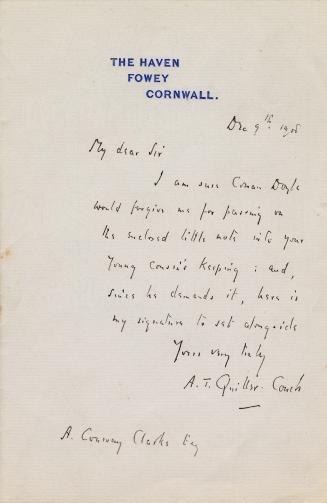 THE HAVEN
FOWEY
CORNWALL.
Dec 9th. 1908
My dear Sir
I am sure Conan Doyle
would forgive me for passing on
the enclosed little note into your
young cousin's keeping: and,
since he demands it, here is
my signature to set alongside
Yours very truly
A. T. Quiller-Couch
A. Conway Clarke Esq